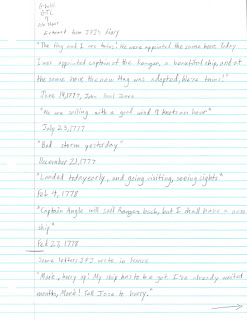 9
Extract from JPJ's Diary
"The flag and I are twins! We were appointed the same hour today
I was appointed captain of the Ranger, a beautiful ship, and at
the same hour the new flag was adopted, We're twins!"
June 14, 1777, John Paul Jones
"We are sailing with a good wind 9 knots an hour"
July 23, 1777
"Bad storm yesterday"
November 2, 1777
"Landed today early, and going visiting, seeing sights"
Feb 4, 1778
"Captain Angle will sail Ranger back, but I shall have a new
ship"
Feb 27, 1778
Some letters JPJ wrote in France
"Mark, hurry up! My ship has to be got. I've already waited
months, Mark! Tell Jose to hurry."